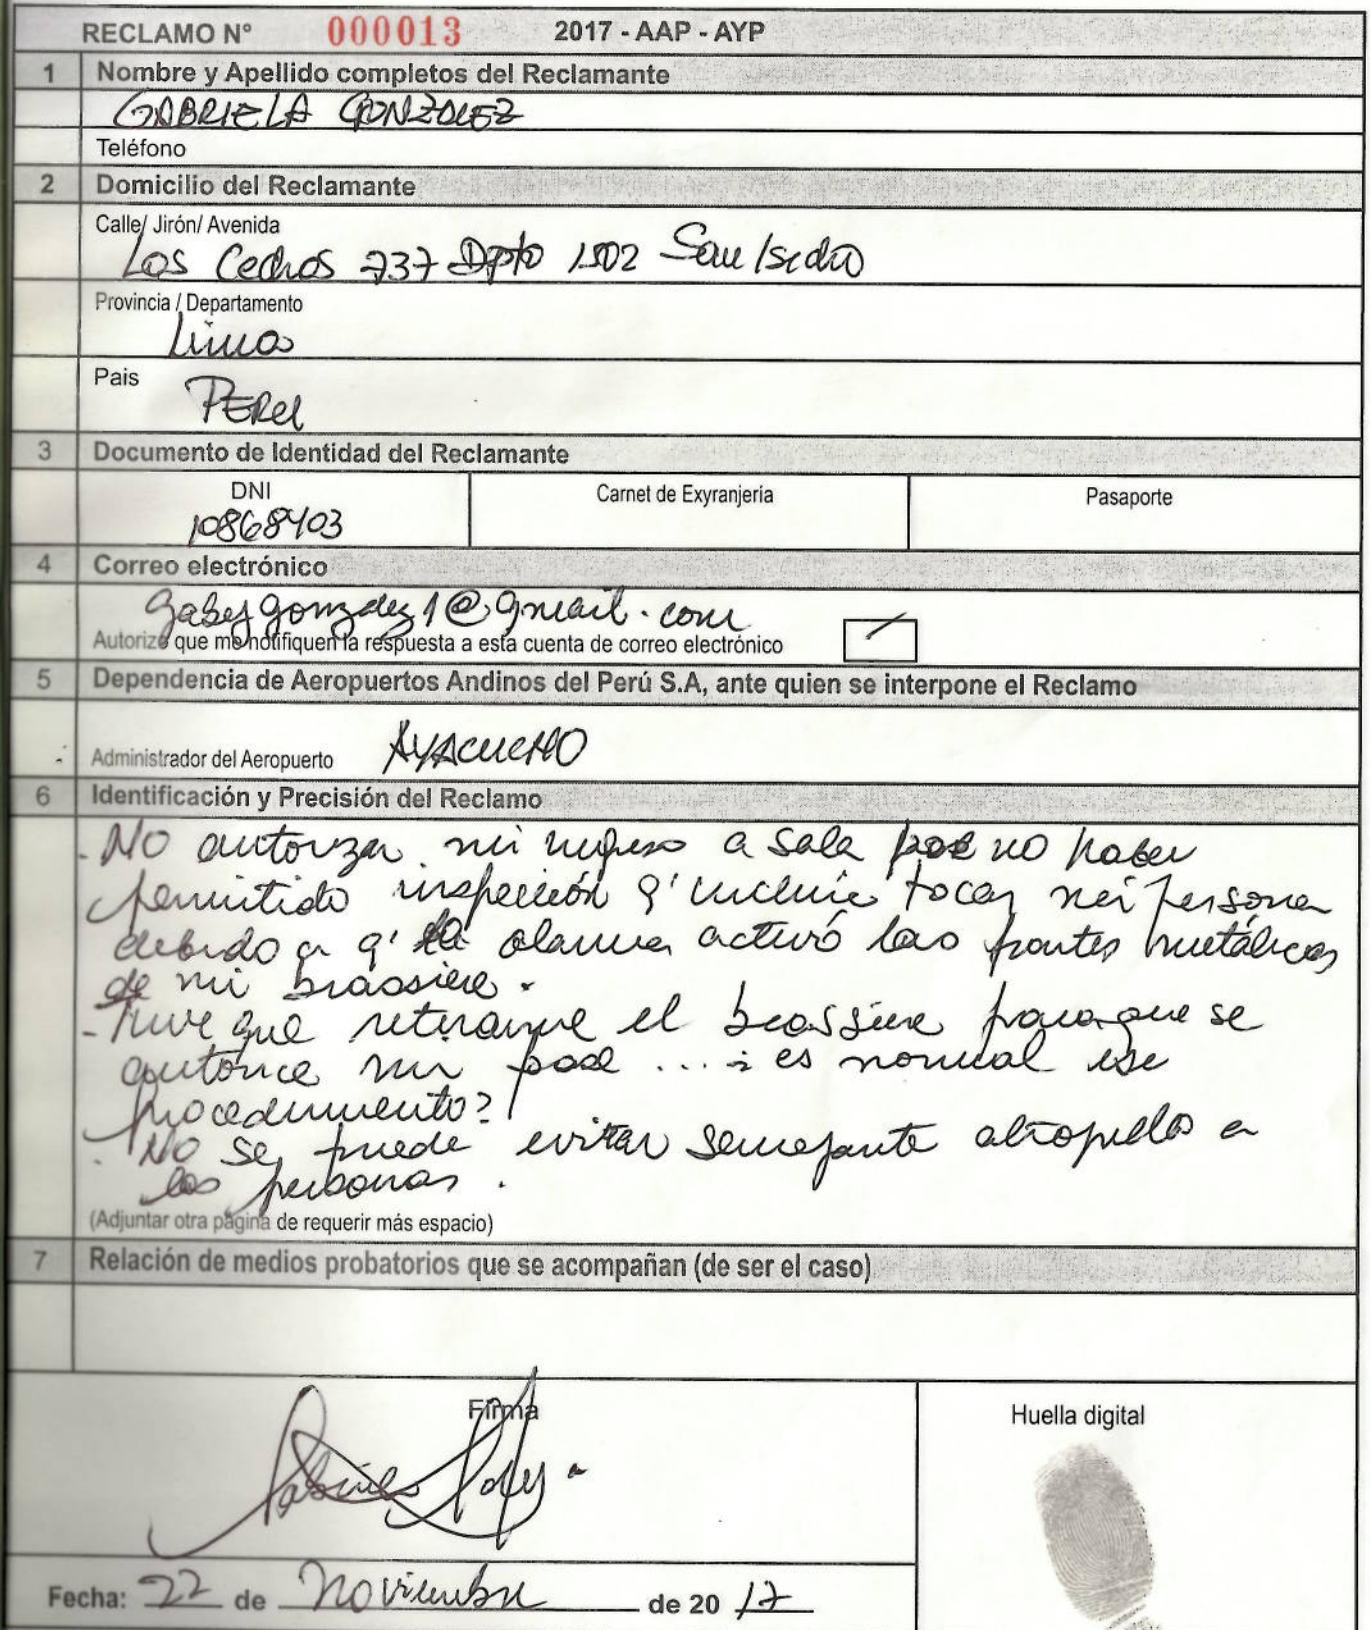 RECLAMO N° 000013 2017 - AAP - AYP
1 Nombre y Apellido completos del Reclamante
GABRIELA GONZALEZ
Teléfono
2 Domicilio del Reclamante
Calle/ Jirón/ Avenida
Los Cedros 737 Dpto 1502 San Isidro
Provincia / Departamento
Lima
Pais
PERU
3 Documento de Identidad del Reclamante
DNI Carnet de Exyranjeria Pasaporte
10868403
4 Correo electrónico
gabygonzalez1@gmail.com
Autorizo que me notifiquen la respuesta a esta cuenta de correo electrónico
5 Dependencia de Aeropuertos Andinos del Perú S.A, ante quien se interpone el Reclamo
Administrador del Aeropuerto AYACUCHO
6 Identificación y Precisión del Reclamo
- No autorizan mi ingreso a sala por no haber
permitido inspección q' incluía tocar mi persona
debido a q' la alarma activó las partes metálicas
de mi brassiere.
- Tuve que retirarme el brassiere para que se
autorice mi pase ... ¿ es normal ese
procedimiento?
. No se puede evitar semejante atropello a
las personas.
(Adjuntar otra página de requerir más espacio)
7 Relación de medios probatorios que se acompañan (de ser el caso)
Firma
Huella digital
Fecha: 22 de Noviembre de 20 17